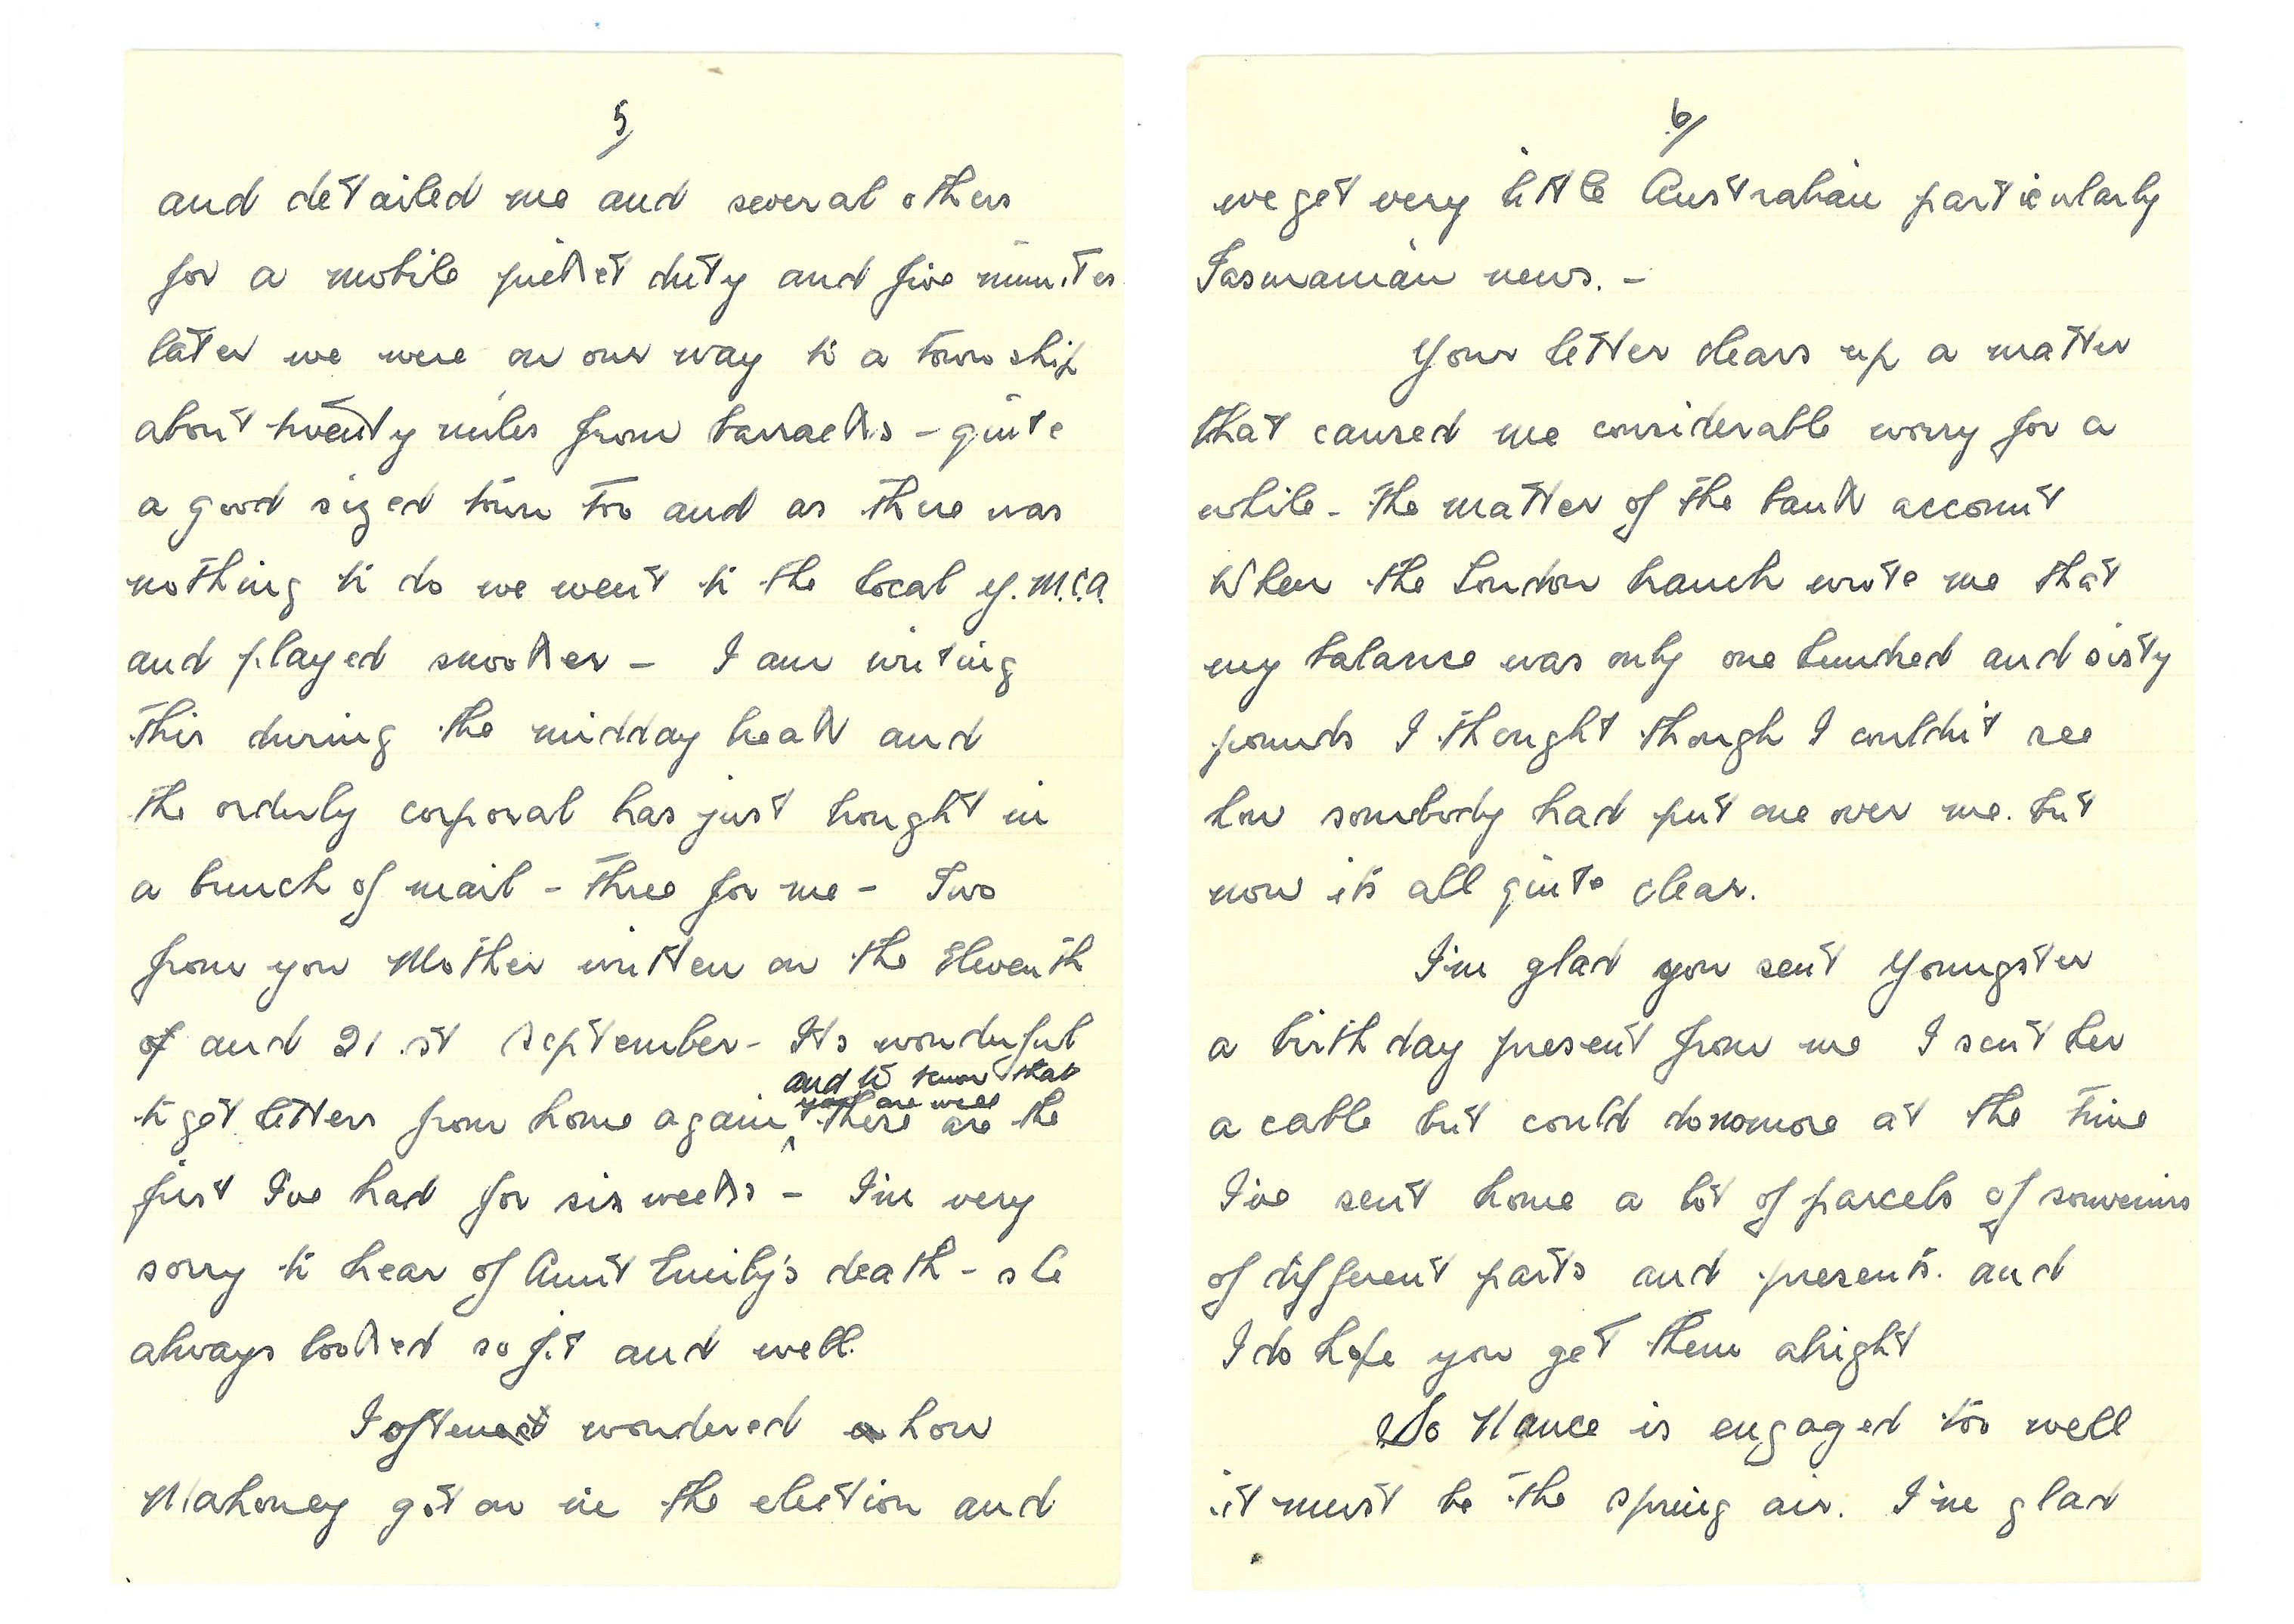 5/
and detailed me and several others
for a mobile picket duty and five minutes
later we were on our way to a township
about twenty miles from barracks - quite
a good sized town too and as there was
nothing to do we went to the local Y.M.C.A.
and played snooker - I am writing
this during the midday break and
the orderly corporal has just brought in
a bunch of mail - three for me - Two
from you Mother written on the Eleventh
of and 21st September - Its wonderful
and to know that
you are well
to get letters from home again there are the
first I've had for six weeks - I'm very
sorry to hear of Aunt Emily's death - she
always looked so fit and well.
I often wondered how
Mahoney got on in the election and
6/
we get very little Australian particularly
Tasmanian news. -
Your letter clears up a matter
that caused me considerable worry for a
while - the matter of the bank account
When the London branch wrote me that
my balance was only one hundred and sixty
pounds I thought though I couldn't see
how somebody had put one over me. but
now its all quite clear.
I'm glad you sent Youngster
a birthday present from me I sent her
a cable but could do no more at the time
I've sent home a lot of parcels of souvenirs
of different parts and presents. and
I do hope you get them alright
So Nance is engaged too well
it must be the spring air. I'm glad